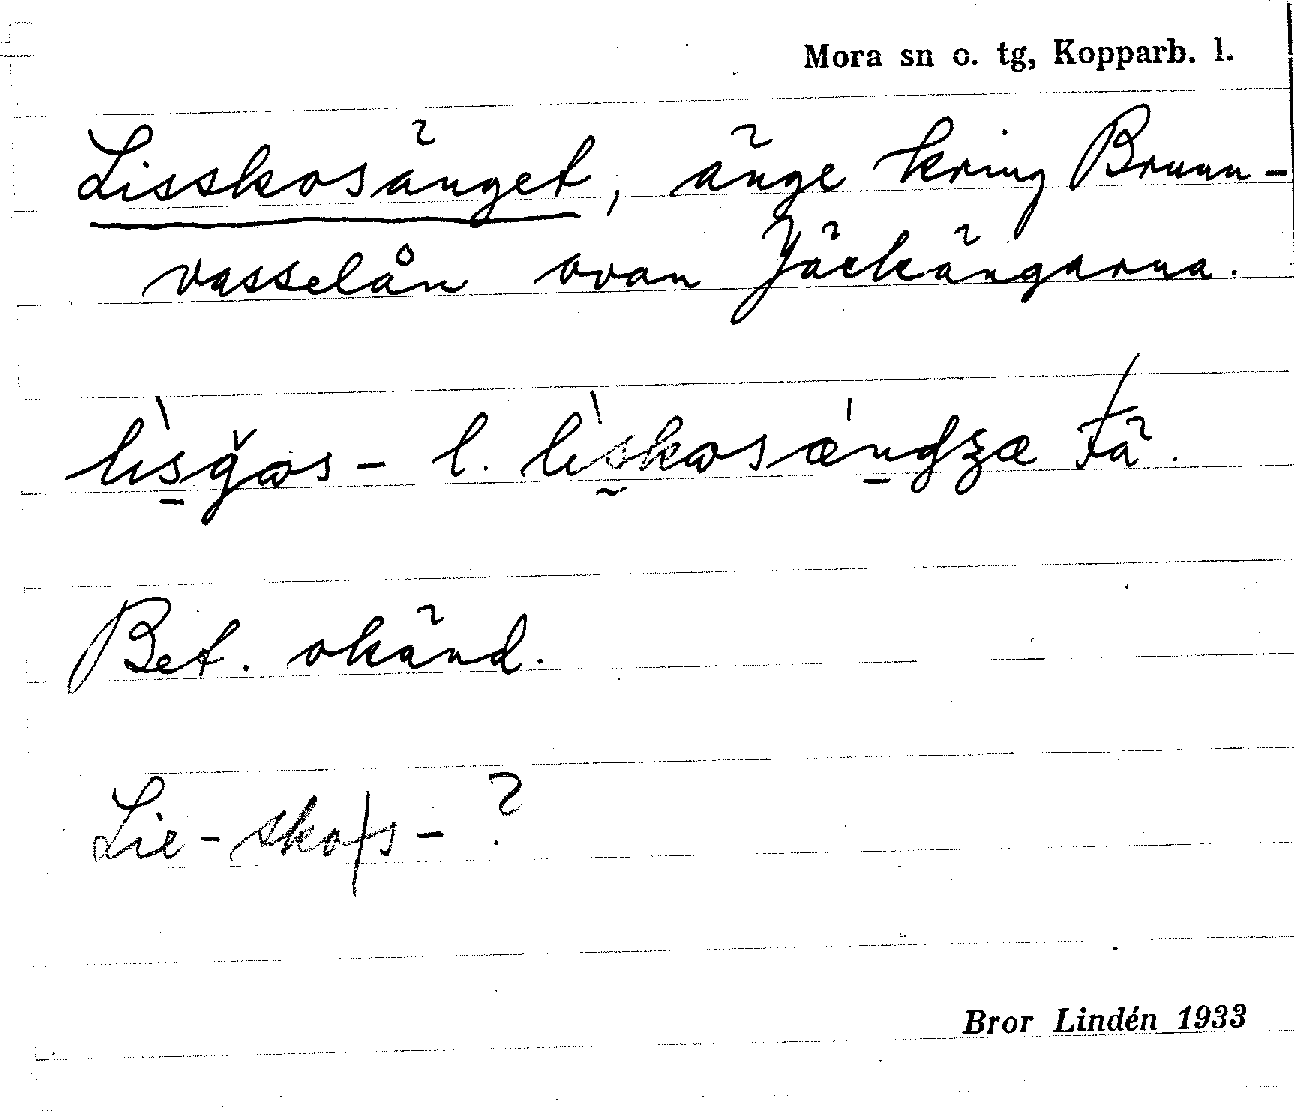 Mora sn o. tg, Kopparb. l.
Lisskosänget, änge kring Brunn-
vasselån ovan Jäckängarna.
lìsǧos- l. lìskosændʒæ Fä.
Bet. okänd.
Lie-skofs- ?
Bror Lindén 1933